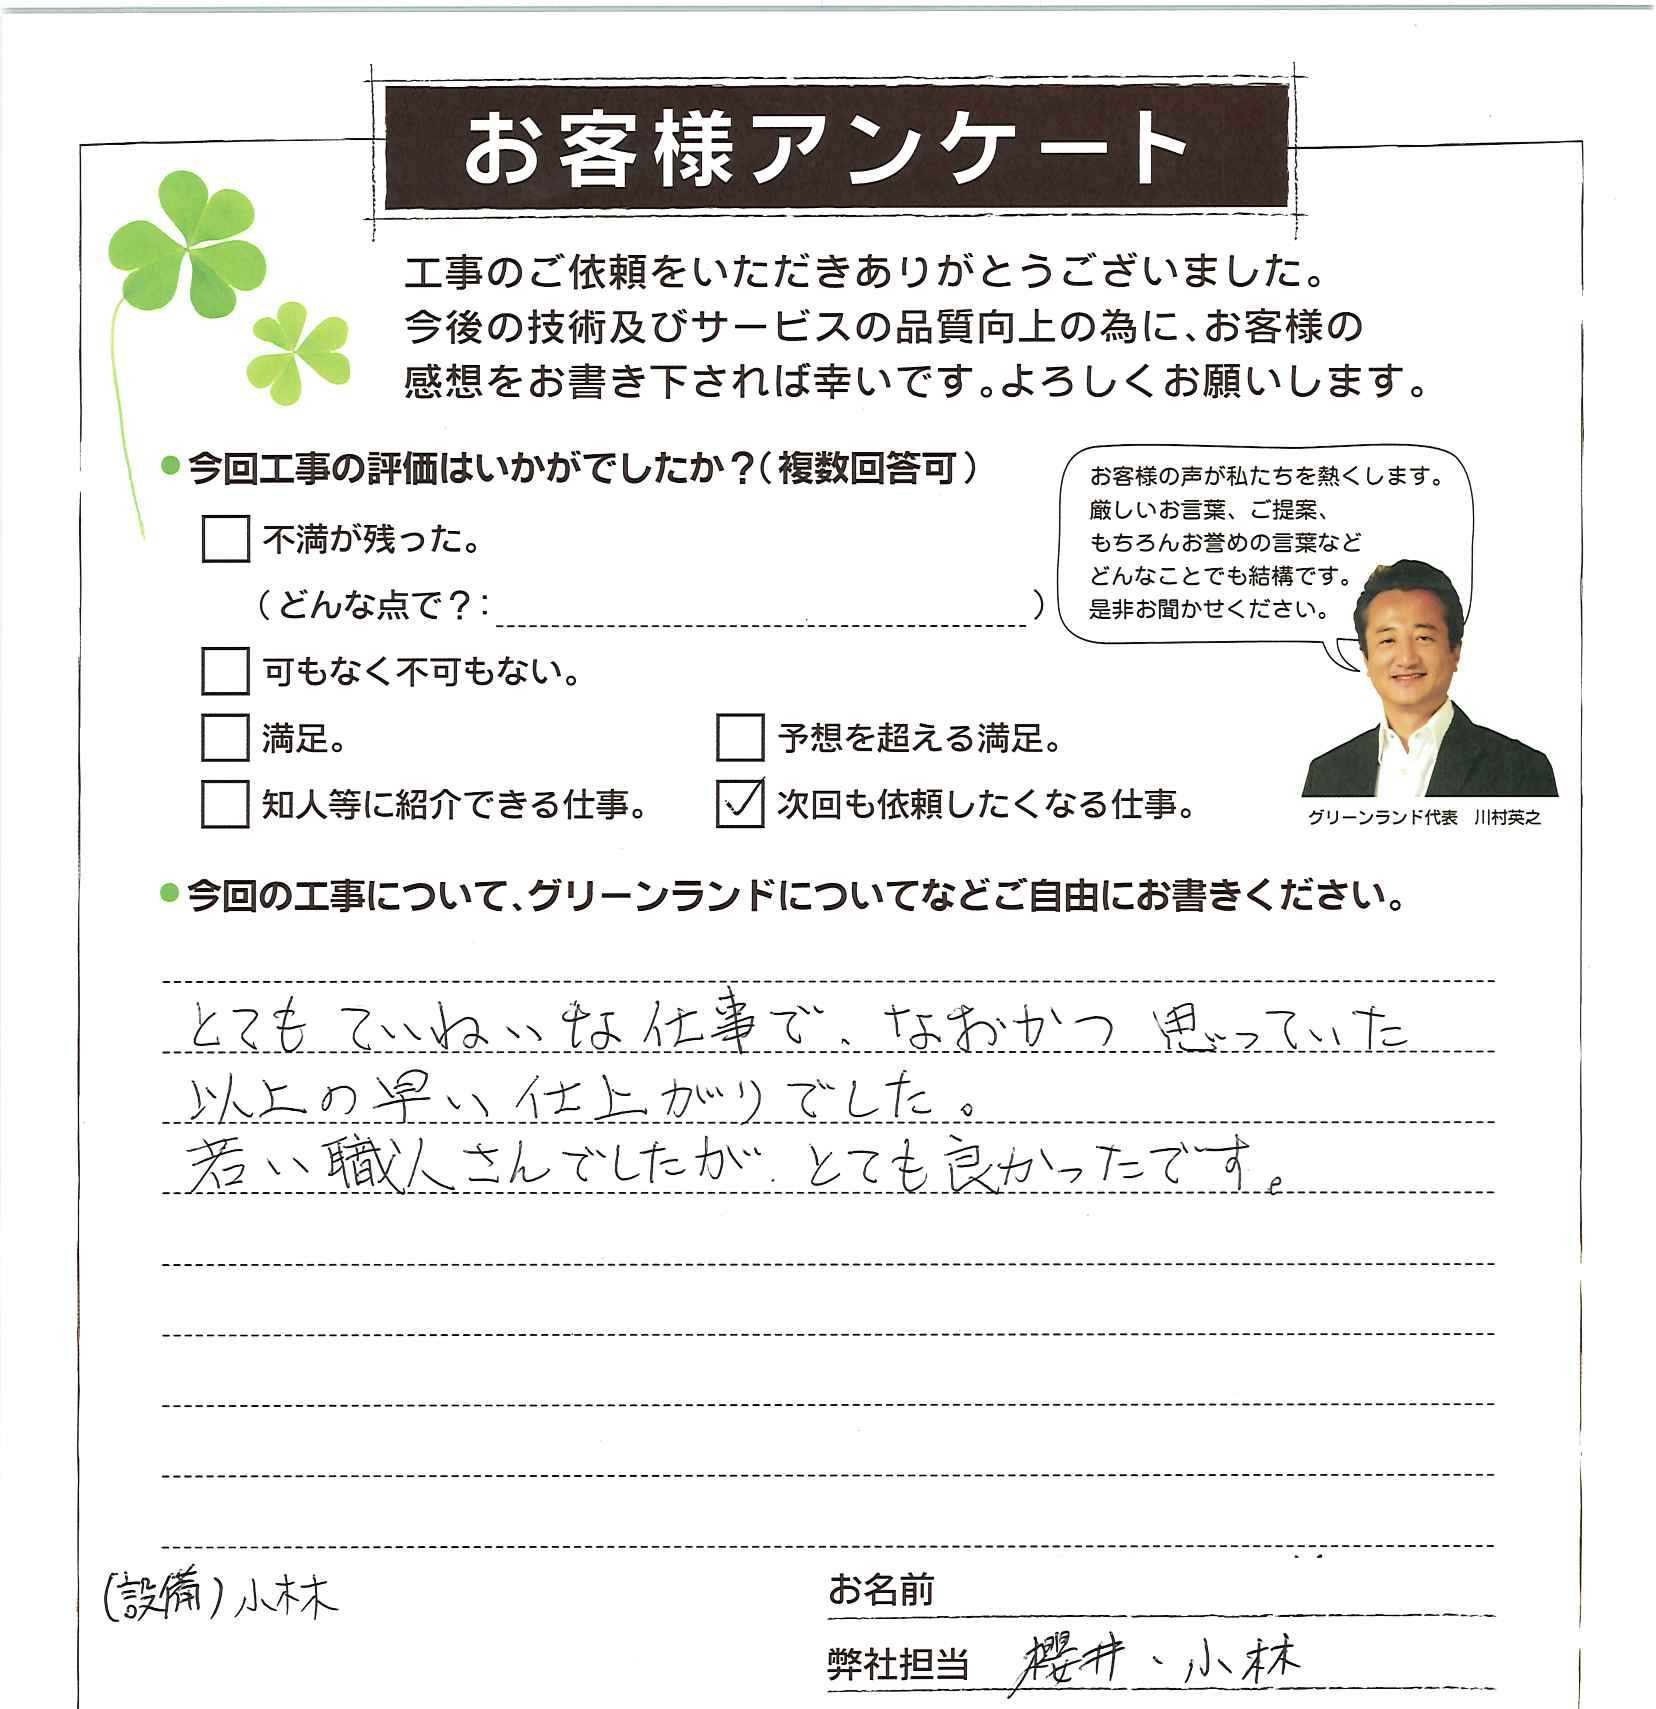 お客様アンケート
工事のご依頼をいただきありがとうございました。
今後の技術及びサービスの品質向上の為に、お客様の
感想をお書き下されば幸いです。よろしくお願いします。
●今回工事の評価はいかがでしたか？（複数回答可）
不満が残った。
（どんな点で？：　）
可もなく不可もない。
満足。
予想を超える満足。
知人等に紹介できる仕事。
次回も依頼したくなる仕事。
お客様の声が私たちを熱くします。
厳しいお言葉、ご提案、
もちろんお誉めの言葉など
どんなことでも結構です。
是非お聞かせください。
グリーンランド代表　川村英之
●今回の工事について、グリーンランドについてなどご自由にお書きください。
とても ていねいな仕事で、なおかつ 思っていた
以上の早い仕上がりでした。
若い職人さんでしたが、とても良かったです。
(設備)小林
お名前
弊社担当　櫻井、小林